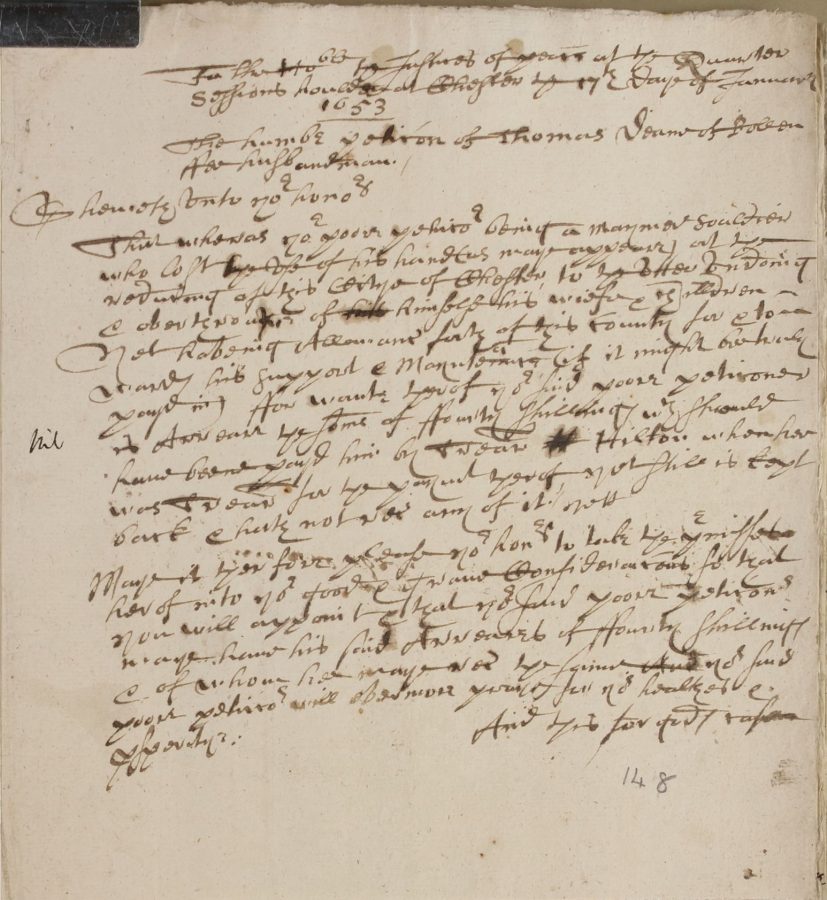 To the Hoble the Justices of peace at the Quarter
Sessions houlden at Chester the 17th Daye of Januarie
1653
The humble peticon of Thomas Deane of
husbandman.
Sheweth Unto yor honors
That wheras yor poore peticor being a maymed Souldier
who lost the use of his hand (as maye appeare) at the
reducing of this Cittye of Chester to the utter undoeing
& overthrowe of himselfe his wiefe & Children
Yet haveing Allowance forth of this County for & to
wards his support & Mantenance (if it might be truly
payd in) ffor wante therof yor said poore peticoner
is Arreare the some of ffourty shillings wch should
have beene payd him by Trear Hilton when hee
was Trear for the payment therof yet still is kept
back & hath not rec any of it yett
Maye it therfore please yor honrs to take the prmisses
herof into yor good & Grave Consideracons so that
you will appoint that yor said poore peticonr
maye have his said Arreares of ffourty shillings
& of whom hee maye rec the same And yor said
poore peticor will evermore praye for yor healthes &
psperitye:
And this for gods cause
nil
148